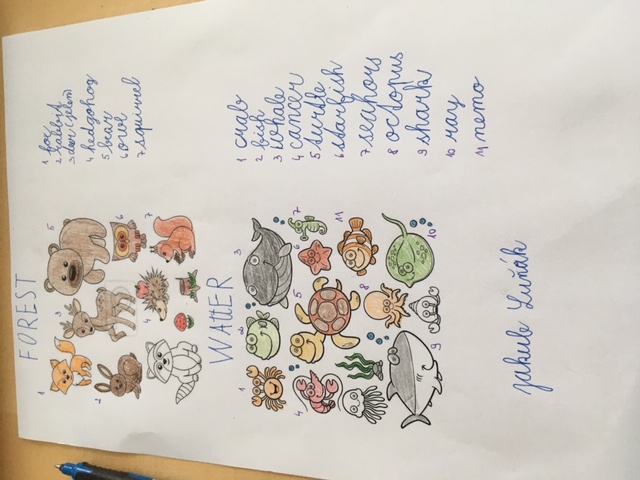 FOREST
1 fox
2 rabbit
3 deer (jelen)
4 hedgohog
5 bear
6 owl
7 squirrel
1
2
3
4
5
6
7
WATTER
1 crab
2 fish
3 whale
4 cancer
5 turtle
6 starfish
7 seahors
8 octopus
9 shark
10 ray
11 nemo
1
2
3
4
5
6
7
8
9
10
11
Jakub Luňák